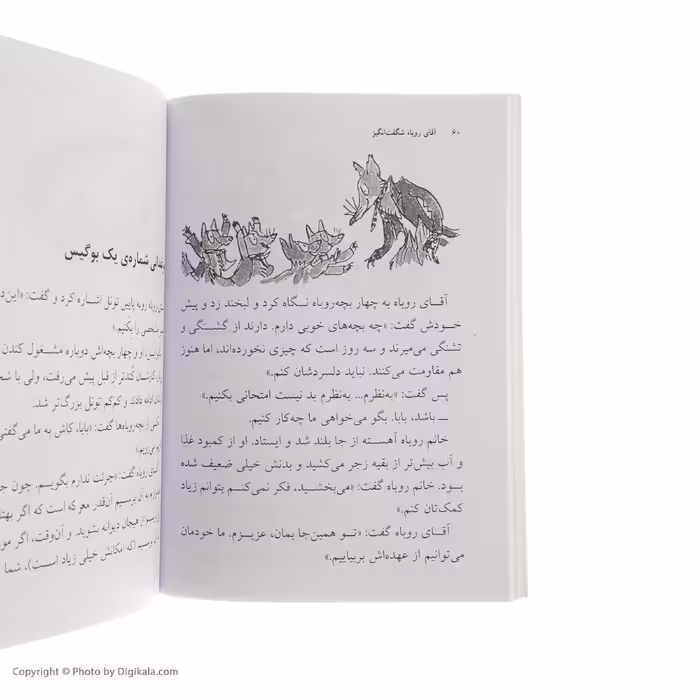 ۶۰ آقای روباه شگفت‌انگیز
آقای روباه به چهار بچه‌روباه نگاه کرد و لبخند زد و پیش
خودش گفت: «چه بچه‌های خوبی دارم. دارند از گشنگی و
تشنگی می‌میرند و سه روز است که چیزی نخورده‌اند، اما هنوز
هم مقاومت می‌کنند. نباید دلسردشان کنم.»
پس گفت: «به‌نظرم... به‌نظرم بد نیست امتحانی بکنیم.»
ــ باشد، بابا. بگو می‌خواهی ما چه‌کار کنیم.
خانم روباه آهسته از جا بلند شد و ایستاد. او از کمبود غذا
و آب بیش‌تر از بقیه زجر می‌کشید و بدنش خیلی ضعیف شده
بود. خانم روباه گفت: «می‌بخشید، فکر نمی‌کنم بتوانم زیاد
کمک‌تان کنم.»
آقای روباه گفت: «تــو همین‌جا بمان، عزیزم. ما خودمان
می‌توانیم از عهده‌اش بربیاییم.»
شماره‌ی یک بوگیس
روباه روبه پایین تونل اشاره کرد و گفت: «این
مشخصی را بکنیم.»
او و چهار بچه‌اش دوباره مشــغول کندن
کارشان کُندتر از قبل پیش می‌رفت، ولی با
ادامه دادند و کم‌کم تونل بزرگ‌تر شد.
از بچه‌روباه‌ها گفت: «بابا، کاش به ما می‌گفتی
می‌رویم.»
روباه گفت: «جرئت ندارم بگویــم. چون
به آن برسیم آن‌قدر معرکه است که اگر
از هیجان دیوانه بشوید. و آن‌وقت، اگر
(که امکانش خیلی زیاد است)، شما
Copyright © Photo by Digikala.com